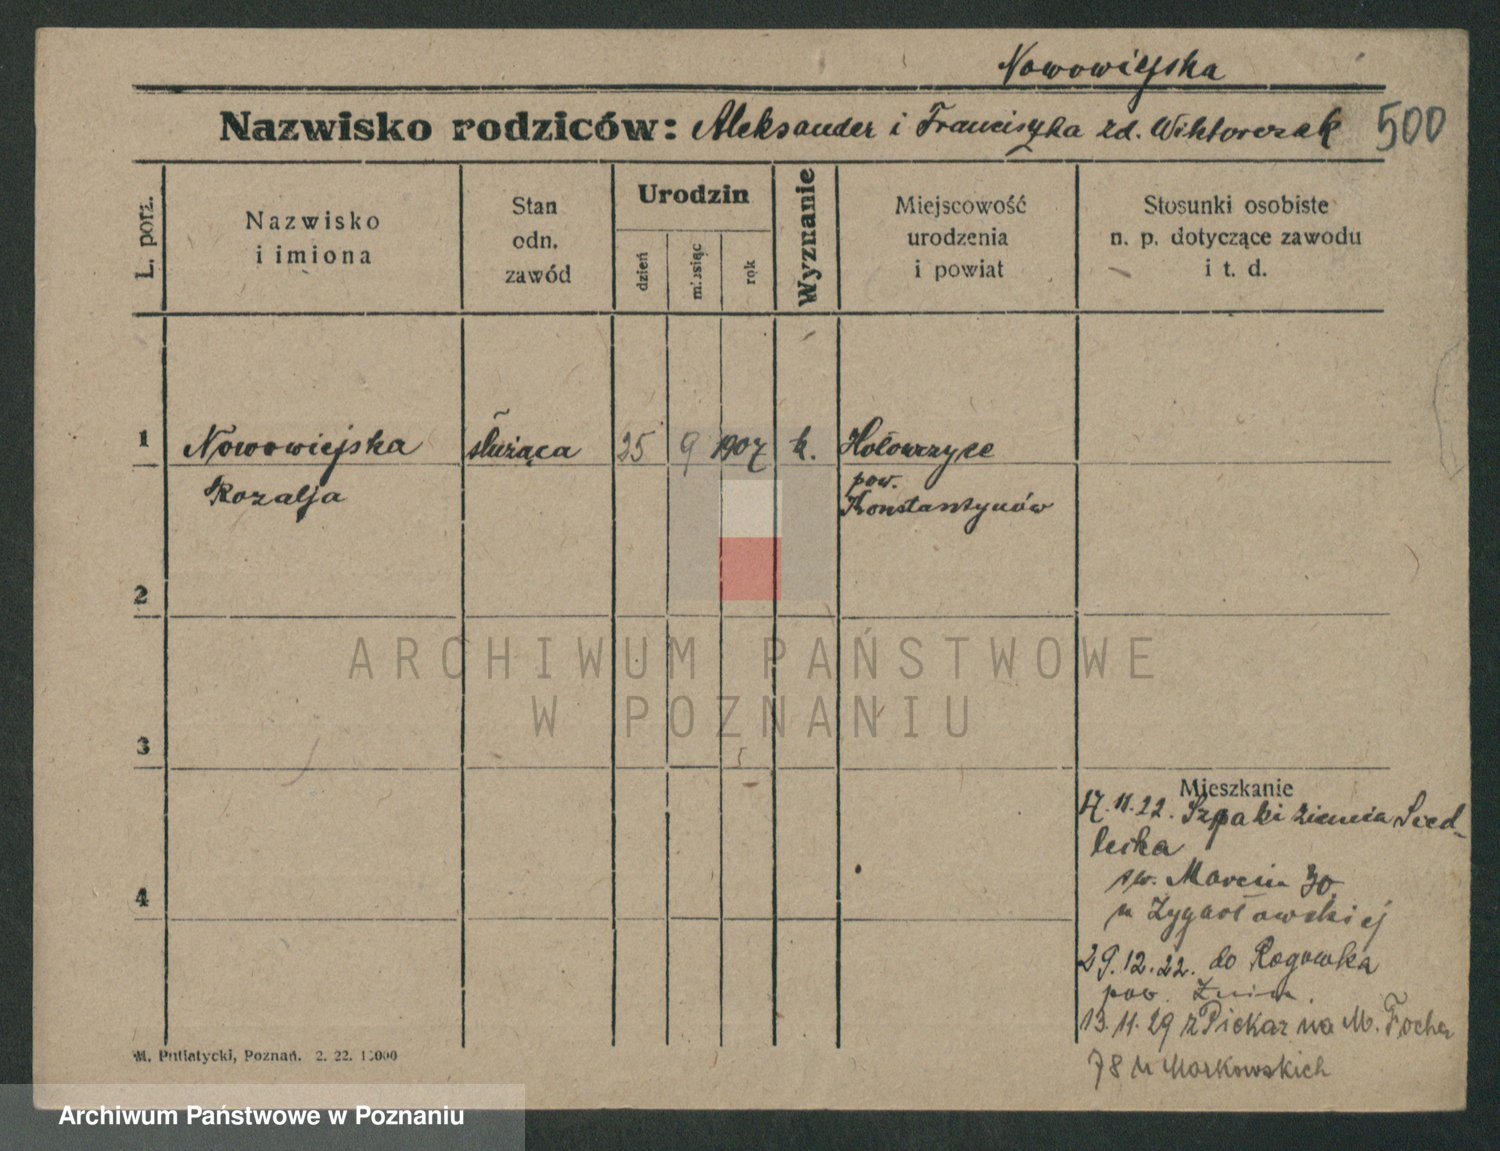 Nowowiejska
Nazwisko rodziców: Aleksander i Franciszka zd. Wiktorczak 500
L. porz.
Nazwisko i imiona
Stan odn. zawód
Urodzin
dzień
miesiąc
rok
Wyznanie
Miejscowość urodzenia i powiat
Stosunki osobiste n. p. dotyczące zawodu i t. d.
1 Nowowiejska służąca 25 9 1907 k. Hołowczyce
Rozalja pow. Konstantynów
2
3
Mieszkanie
17.11.22. Szpaki ziemia Siedlecka
św. Marcin 30
u Zygadłowskiej
4
29.12.22. do Rogowka
pow. Żnin.
13.11.29 z Piekar na M. Focha
78 u Markowskich
M. Putiatycki, Poznań. 2. 22. 15000
ARCHIWUM PAŃSTWOWE
W POZNANIU
Archiwum Państwowe w Poznaniu